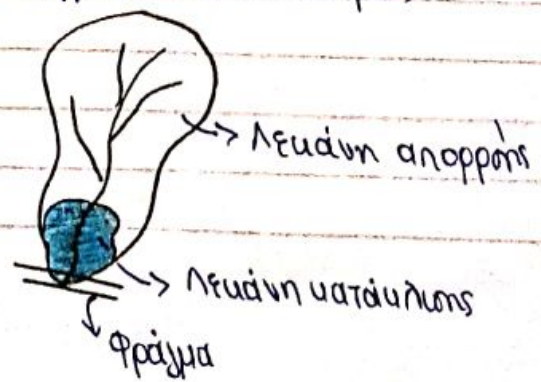 Λεκάνη απορροής
Λεκάνη κατάκλισης
Φράγμα